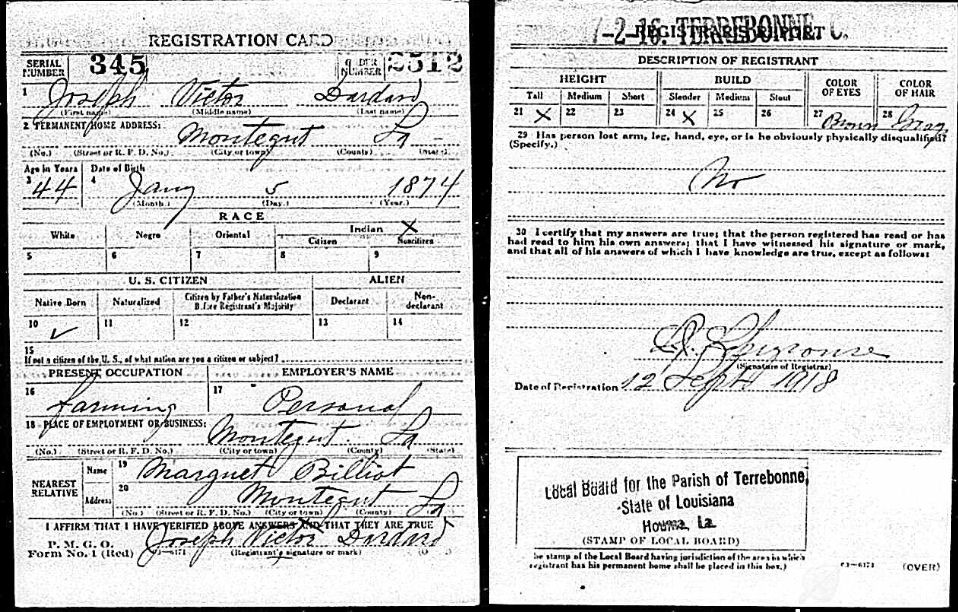 REGISTRATION CARD
SERIAL NUMBER 345 ORDER NUMBER 2512
1 Joseph Victor Dardard
(First name) (Middle name) (Last name)
2 PERMANENT HOME ADDRESS:
Montegut La
(No.) (Street or R. F. D. No.) (City or town) (County) (State)
Age in Years Date of Birth
3 44 4 Jany 5 1874
(Month.) (Day.) (Year.)
RACE
White Negro Oriental Indian X
Citizen Noncitizen
5 6 7 8 9
U. S. CITIZEN ALIEN
Native Born Naturalized Citizen by Father's Naturalization Before Registrant's Majority Declarant Non-declarant
10 ✓ 11 12 13 14
15
If not a citizen of the U. S., of what nation are you a citizen or subject?
PRESENT OCCUPATION EMPLOYER'S NAME
16 farming 17 Personal
18 PLACE OF EMPLOYMENT OR BUSINESS:
Montegut La
(No.) (Street or R. F. D. No.) (City or town) (County) (State)
NEAREST RELATIVE Name 19 Marguet Billiot
Address 20 Montegut La
(No.) (Street or R. F. D. No.) (City or town) (County) (State)
I AFFIRM THAT I HAVE VERIFIED ABOVE ANSWERS AND THAT THEY ARE TRUE
P. M. G. O.
Form No. 1 (Red) Joseph Victor Dardard
(Registrant's signature or mark)
7-2-16. TERREBONNE C.
REGISTRAR'S REPORT
DESCRIPTION OF REGISTRANT
HEIGHT BUILD COLOR OF EYES COLOR OF HAIR
Tall Medium Short Slender Medium Stout
21 X 22 23 24 X 25 26 27 Brown 28 Gray
29 Has person lost arm, leg, hand, eye, or is he obviously physically disqualified?
(Specify.)
No
30 I certify that my answers are true; that the person registered has read or has
had read to him his own answers; that I have witnessed his signature or mark,
and that all of his answers of which I have knowledge are true, except as follows:
(Signature of Registrar)
Date of Registration 12 Sept 1918
Local Board for the Parish of Terrebonne,
State of Louisiana
Houma, La.
(STAMP OF LOCAL BOARD)
he stamp of the Local Board having jurisdiction of the area in which
registrant has his permanent home shall be placed in this box.)
03-6171 (OVER)